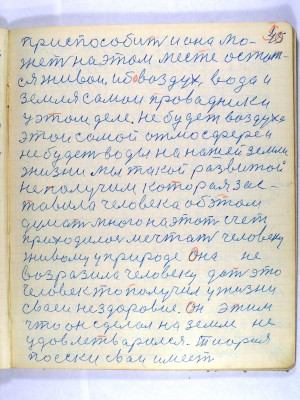 45
приспособить и она мо-
жет на этом месте остат-
ся живой, ибо воздух, вода и
земля самои провадники
у этом деле. не будет воздуха
этой самой атмосферы и
не будет воды на нашей земли
жизни мы такой развитой
не получим которая зас-
тавила человека об этом
думать много на этот счет
приходилос мечтать человеку
живому у природе. Она не
возразила человеку дать это
человек то получил у жизни
сваеи нездоровие. Он этим
что он сделал на земли не
удовлетварился. Тиория
поски сваи имеет